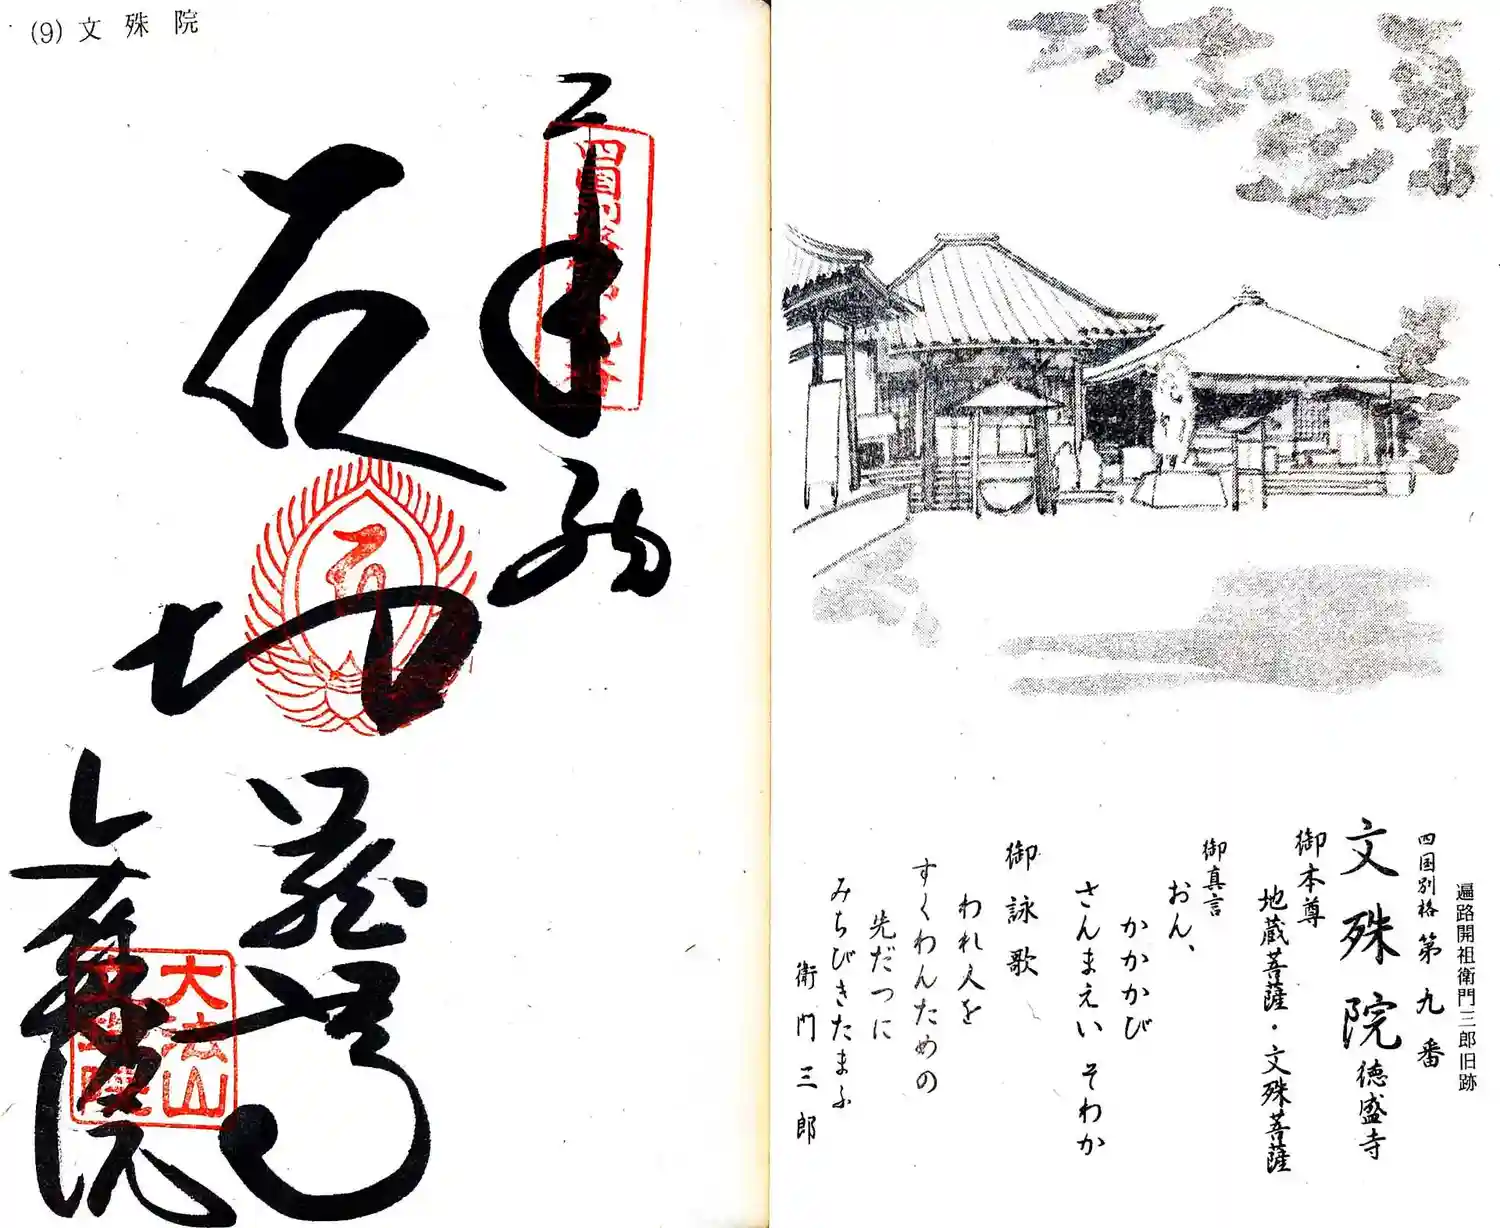 遍路開祖衛門三郎旧跡
四国別格 第九番
文殊院 徳盛寺
御本尊
地蔵菩薩・文殊菩薩
御真言
おん、
かかかび
さんまえい そわか
御詠歌
われ人を
すくわんための
先だつに
みちびきたまふ
衛門三郎
(9) 文殊院
奉納
四国別格第九番
地蔵尊
文殊院
大法山
文殊院